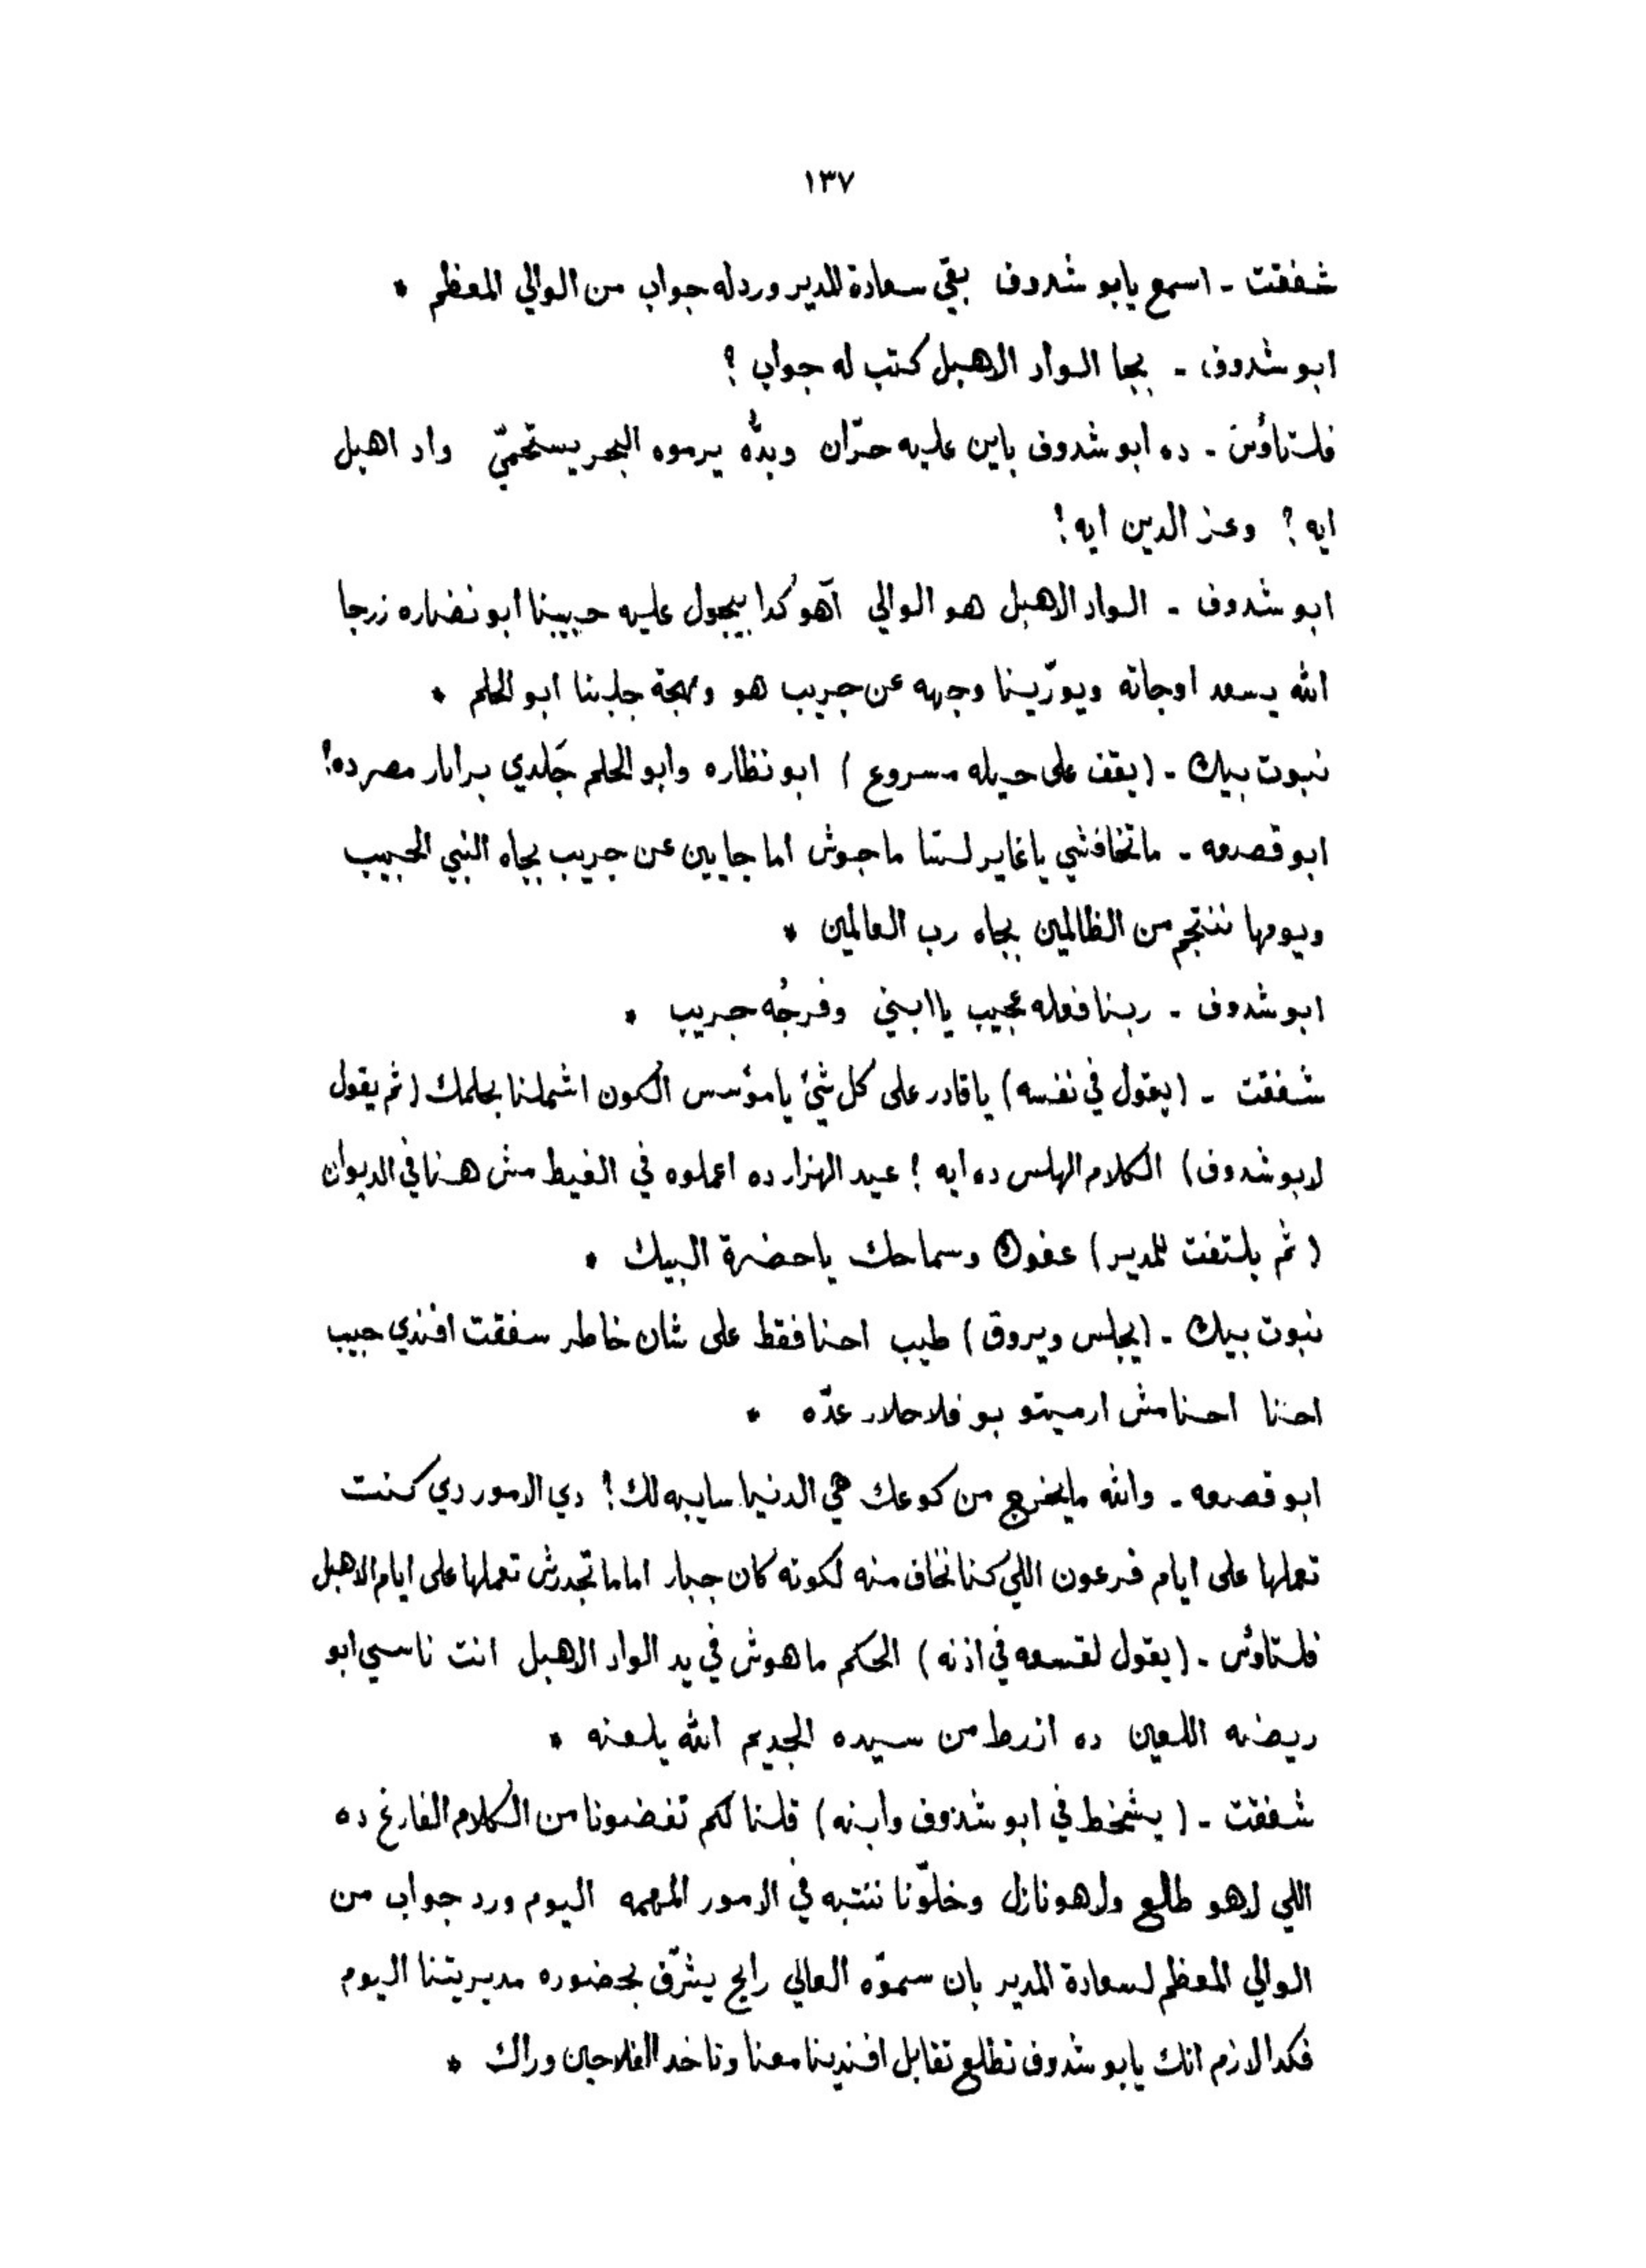 ١٣٧
شفقت - اسمع يابو شدوف بقي سعادة المدير ورد له جواب من الوالي المعظم *
ابو شدوف - بجا الواد الاهبل كتب له جواب ؟
فلتاؤس - ده ابو شدوف باين عليه حرّان وبدّه يرموه البحر يستحميّ واد اهبل
ايه ؟ وعز الدين ايه !
ابو شدوف - الواد الاهبل هو الوالي آهو كدا بيجول عليه حبيبنا ابو نضاره زرجا
الله يسعد اوجاته ويورّينا وجهه عن جريب هو ومهجة جلبنا ابو الحلم *
نبوت بيك - (يقف على حيله مسروع) ابو نظاره وابو الحلم جَلدي برابار مصر ده !
ابو قصعه - ماتخافشي ياغاير لسّا ماجوش اما جايين عن جريب بجاه النبي الحبيب
ويومها ننتجم من الظالمين بجاه رب العالمين *
ابو شدوف - ربنا فعله عجيب يا ابني وفرجُه جريب *
شفقت - (يقول في نفسه) ياقادر على كل شئ يامؤسس الكون اشملنا بحلمك (ثم يقول
لابو شدوف) الكلام الهلس ده ايه ! عيد الهزار ده اعملوه في الغيط مش هنا في الديوان
(ثم يلتفت للمدير) عفوك وسماحك ياحضرة البيك *
نبوت بيك - (يجلس ويروق) طيب احنا فقط على شان خاطر سفقت افندي حبيب
احنا احنا مش ارميتو بو فلاحلار عدّه *
ابو قصعه - والله مايخرج من كوعك هي الدنيا سايبه لك ! دي الامور دي كنت
تعملها على ايام فرعون اللي كنا نخاف منه لكونه كان جبار اما ماتجدرش تعملها على ايام الاهبل
فلتاؤس - (يقول لقسعه في اذنه) الحكم ماهوش في يد الواد الاهبل انت ناسي ابو
ريضه اللعين ده ازرط من سيده الجديم الله يلعنه *
شفقت - (يشخط في ابو شدوف وابنه) قلنا لكم تفضونا من الكلام الفارغ ده
اللي لاهو طالع ولاهو نازل وخلّونا ننتبه في الامور المهمه اليوم ورد جواب من
الوالي المعظم لسعادة المدير بان سموّه العالي رايح يشرّف بحضوره مديريتنا اليوم
فكدا لازم انك يابو شدوف تطلع تقابل افندينا معنا وتاخد الفلاحين وراك *